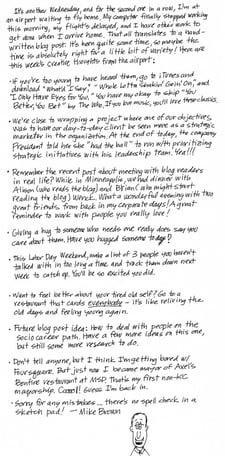 It's another Wednesday, and for the second one in a row, I'm at
an airport waiting to fly home. My computer finally stopped working
this morning, my flight's delayed, and I have other work to
get done when I arrive home. That all translates to a hand-
written blog post. It's been quite some time, so maybe the
time is absolutely right for a little bit of variety! Here are
this week's creative thoughts from the airport:
• If you're too young to have heard them, go to iTunes and
download "What'd I Say," "Whole Lotta Shakin' Goin' On," and
"I Only Have Eyes for You." You have my okay to skip "You
Better, You Bet" by The Who. If you love music, you'll love these classics.
• We're close to wrapping a project where one of our objectives
was to have our day-to-day client be seen more as a strategic
marketer in the organization. At the end of today, the company
President told her she "had the ball" to run with prioritizing
strategic initiatives with his leadership team. Yea!!!
• Remember the recent post about meeting with blog readers
in real life? While in Minneapolis, we had dinner with
Alison (who reads the blog) and Brian (who might start
reading the blog) Wenck. What a wonderful evening with two
great friends from back in my corporate days! A great
reminder to work with people you really love!
• Giving a hug to someone who needs one really does say you
care about them. Have you hugged someone today?
• This Labor Day Weekend, make a list of 3 people you haven't
talked with in too long a time and track them down next
week to catch up. You'll be so excited you did.
• Want to feel better about your tired old self? Go to a
restaurant that cards everybody – it's like reliving the
old days and feeling young again.
• Future blog post idea: How to deal with people on the
socio career path. Have a few more ideas on this one,
but still some more research to do.
• Don't tell anyone, but I think I'm getting bored w/
Foursquare. But just now I became mayor of Axel's
Bonfire restaurant at MSP. That's my first non-KC
mayorship. Coool! Guess I'm back in.
• Sorry for any mistakes... there's no spell check in a
sketch pad! – Mike Brown